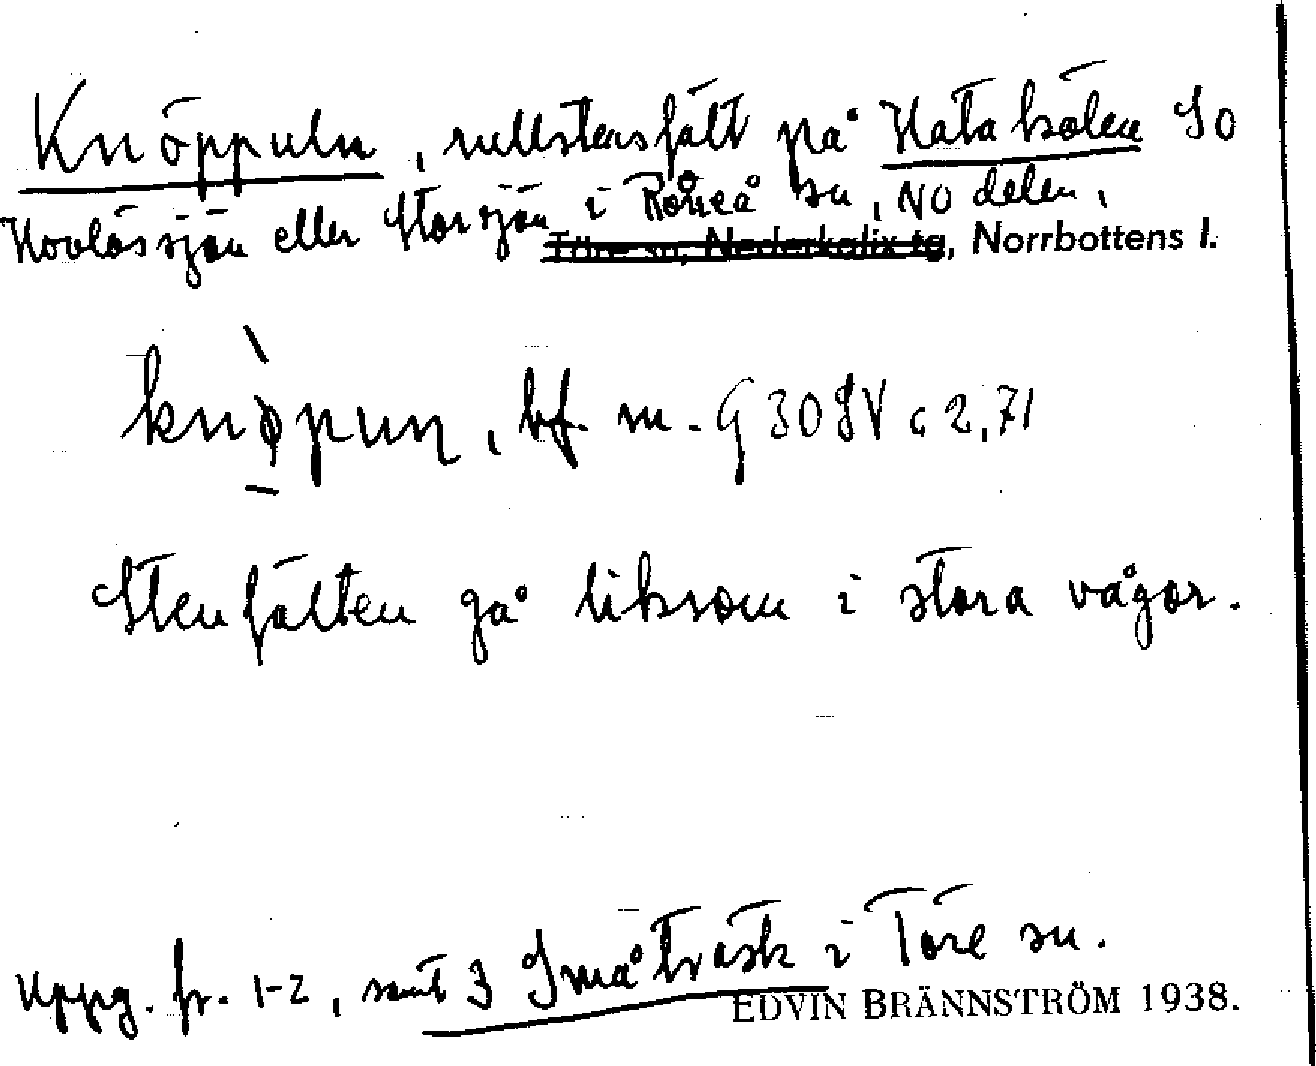 Knöppuln, rullstensfält på Hataheden SO
Hovlössjön eller Storsjön i Råneå sn, NO delen,
Töre sn, Nederkalix tg, Norrbottens l.
knøpun, bf. m. G 30 SV c 2,71
Stenfälten gå liksom i stora vågor.
Uppg. fr. 1-2, samt 3 Småträsk i Töre sn.
EDVIN BRÄNNSTRÖM 1938.